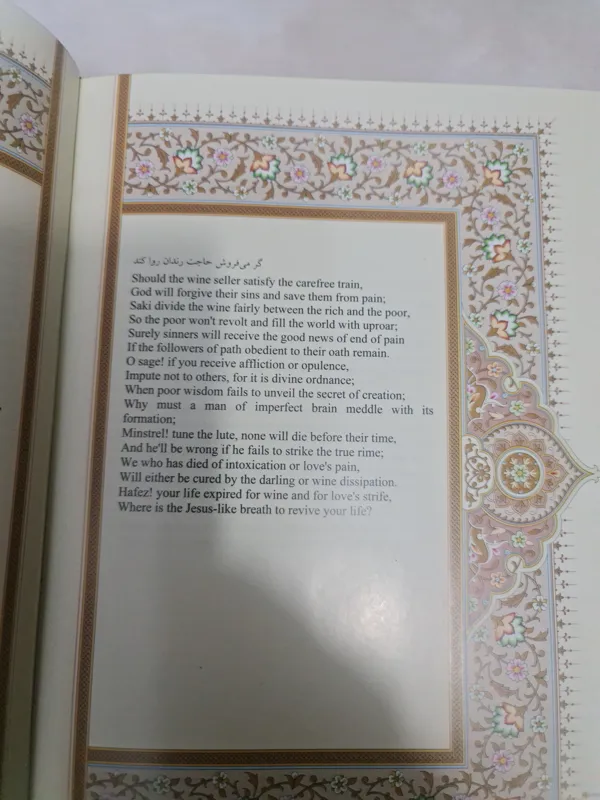 گر می‌فروش حاجت رندان روا کند
Should the wine seller satisfy the carefree train,
God will forgive their sins and save them from pain;
Saki divide the wine fairly between the rich and the poor,
So the poor won't revolt and fill the world with uproar;
Surely sinners will receive the good news of end of pain
If the followers of path obedient to their oath remain.
O sage! if you receive affliction or opulence,
Impute not to others, for it is divine ordnance;
When poor wisdom fails to unveil the secret of creation;
Why must a man of imperfect brain meddle with its
formation;
Minstrel! tune the lute, none will die before their time,
And he'll be wrong if he fails to strike the true rime;
We who has died of intoxication or love's pain,
Will either be cured by the darling or wine dissipation.
Hafez! your life expired for wine and for love's strife,
Where is the Jesus-like breath to revive your life?